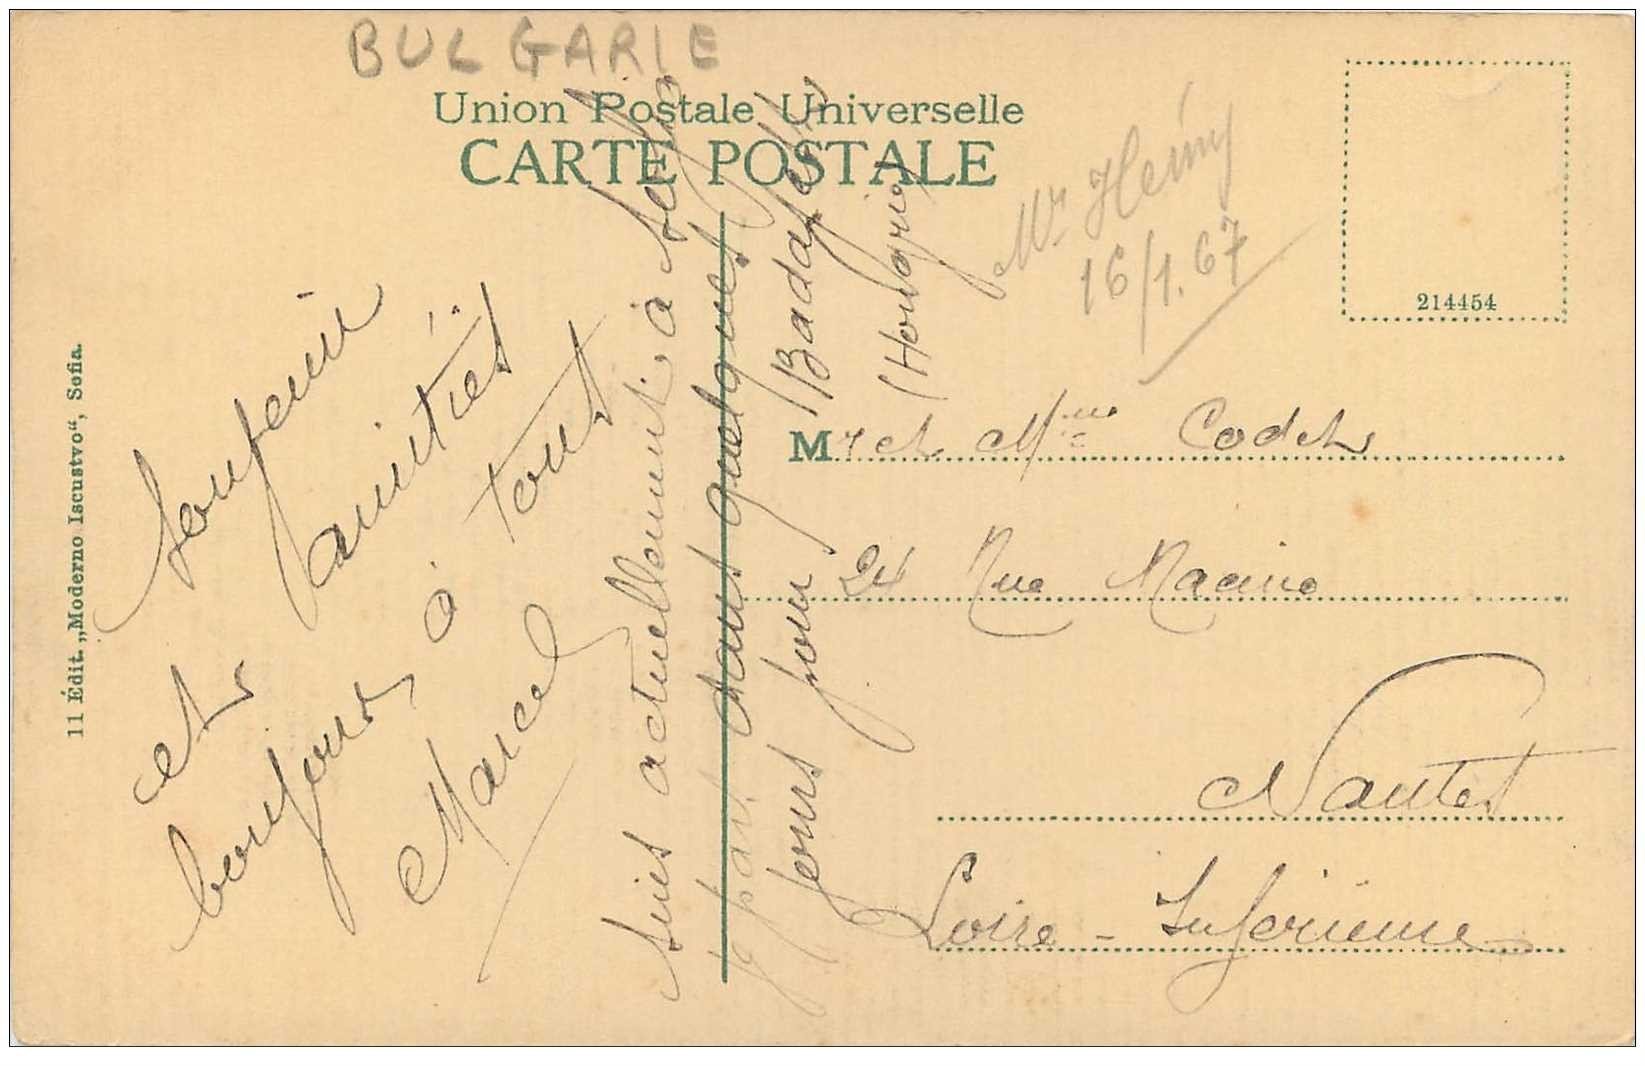 BULGARIE
Union Postale Universelle
CARTE POSTALE
Mr Hémy
16/1.67
214454
11 Édit. „Moderno Iscustvo“, Sofia.
Souvenir
amitiés
et
bonjour à tous
Marcel
Suis actuellement à Sofia
je pars dans quelques
jours pour Budapest
(Hongrie)
Mr et Mme
24 Rue Racine
Nantes
Loire-Inférieure